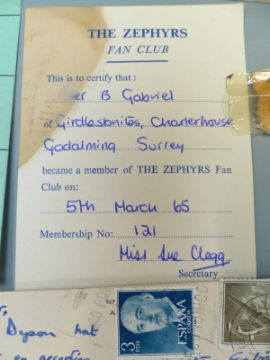 THE ZEPHYRS
FAN CLUB
This is to certify that :
er B Gabriel
of Girdlestonites, Charterhouse
Godalming Surrey
became a member of THE ZEPHYRS Fan
Club on:
5th March 65
Membership No: 121
Miss Sue Clegg
Secretary
Dyson hat
3
PTAS
ESPAÑA